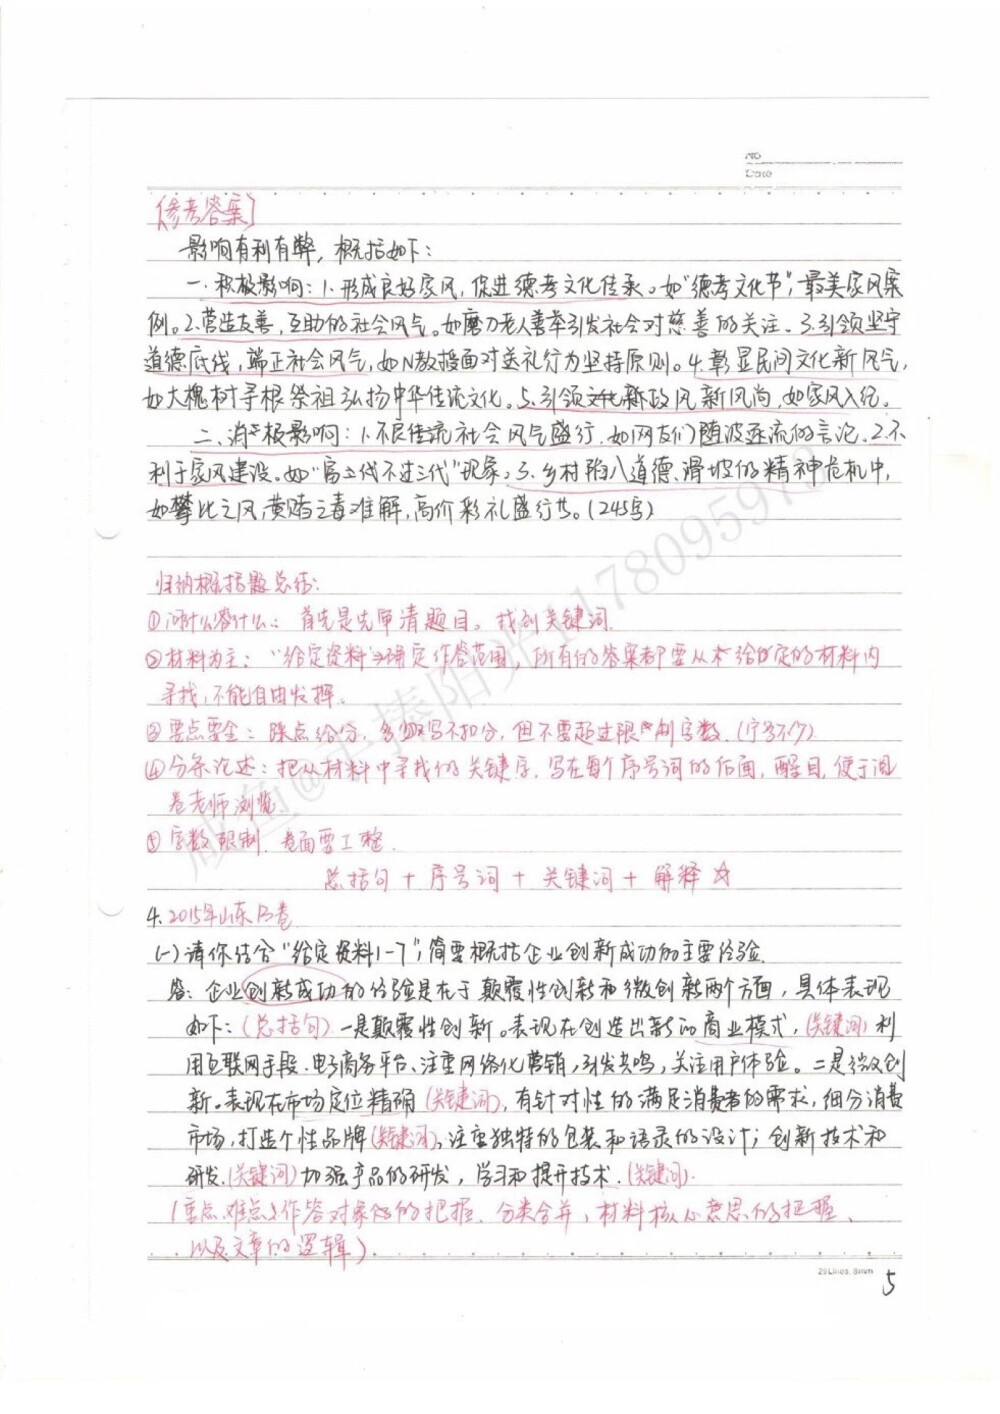 NO
Date
[参考答案]
影响有利有弊，概括如下：
一.积极影响：1.形成良好家风，促进德孝文化传承。如"德孝文化节"，最美家风案
例。2.营造友善，互助的社会风气。如磨刀老人善举引发社会对慈善的关注。3.引领坚守
道德底线，端正社会风气，如N教授面对送礼行为坚持原则。4.彰显民间文化新风气，
如大槐树寻根祭祖弘扬中华传统文化。5.引领文化新政风新风尚，如家风入纪。
二、消极影响：1.不良传统社会风气盛行，如网友们随波逐流的言论。2.不
利于家风建设。如"富二代不过三代"现象。3.乡村陷入道德、滑坡的精神危机中，
如攀比之风，黄赌之毒难解，高价彩礼盛行等。(245字)
归纳概括题总结：
①问什么答什么：首先是先审清题目。找到关键词.
②材料为主："给定资料"确定作答范围，所有的答案都要从本给定的材料内
寻找，不能自由发挥.
③要点要全：踩点给分，多写不扣分，但不要超过限制字数.(宁多不少).
④分条论述：把从材料中寻找的关键字，写在每个序号词的后面，醒目，便于阅
卷老师浏览.
⑤字数限制.卷面要工整.
总括句 + 序号词 + 关键词 + 解释 ☆
4.2015年山东B卷
(一)请你结合"给定资料1-7"，简要概括企业创新成功的主要经验.
答：企业创新成功的经验是在于颠覆性创新和微创新两个方面，具体表现
如下：(总括句).一是颠覆性创新。表现在创造出新的商业模式，(关键词)利
用互联网手段、电子商务平台、注重网络化营销，引发共鸣，关注用户体验。二是微创
新。表现在市场定位精确(关键词)，有针对性的满足消费者的需求，细分消费
市场，打造个性品牌(关键词)，注重独特的包装和语录的设计；创新技术和
研发.(关键词)加强产品的研发，学习和提升技术.(关键词).
(重点.难点：作答对象的把握、分类合并，材料核心意思的把握、
以及文章的逻辑).
29Lines. 8mm
5
咸鱼@手捧阳光1178095973